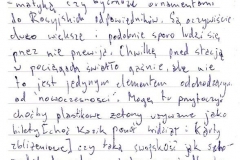 matyką czy wyrazów ornamentami
do Rosyjskich odpowiedników. Są oczywiście
dużo większe i podobnie sporo ludzi się
przez nie przewija. Chwilkę przed stacją
w pociągach światło gaśnie, ale nie
to jest jedynym elementem odchodzącym
od nowoczesności. Mogę tu przytoczyć
choćby plastikowe żetony używane jako
bilety (choć Kasik pona widział i karty
zbliżeniowe) czy taką swojskość jak